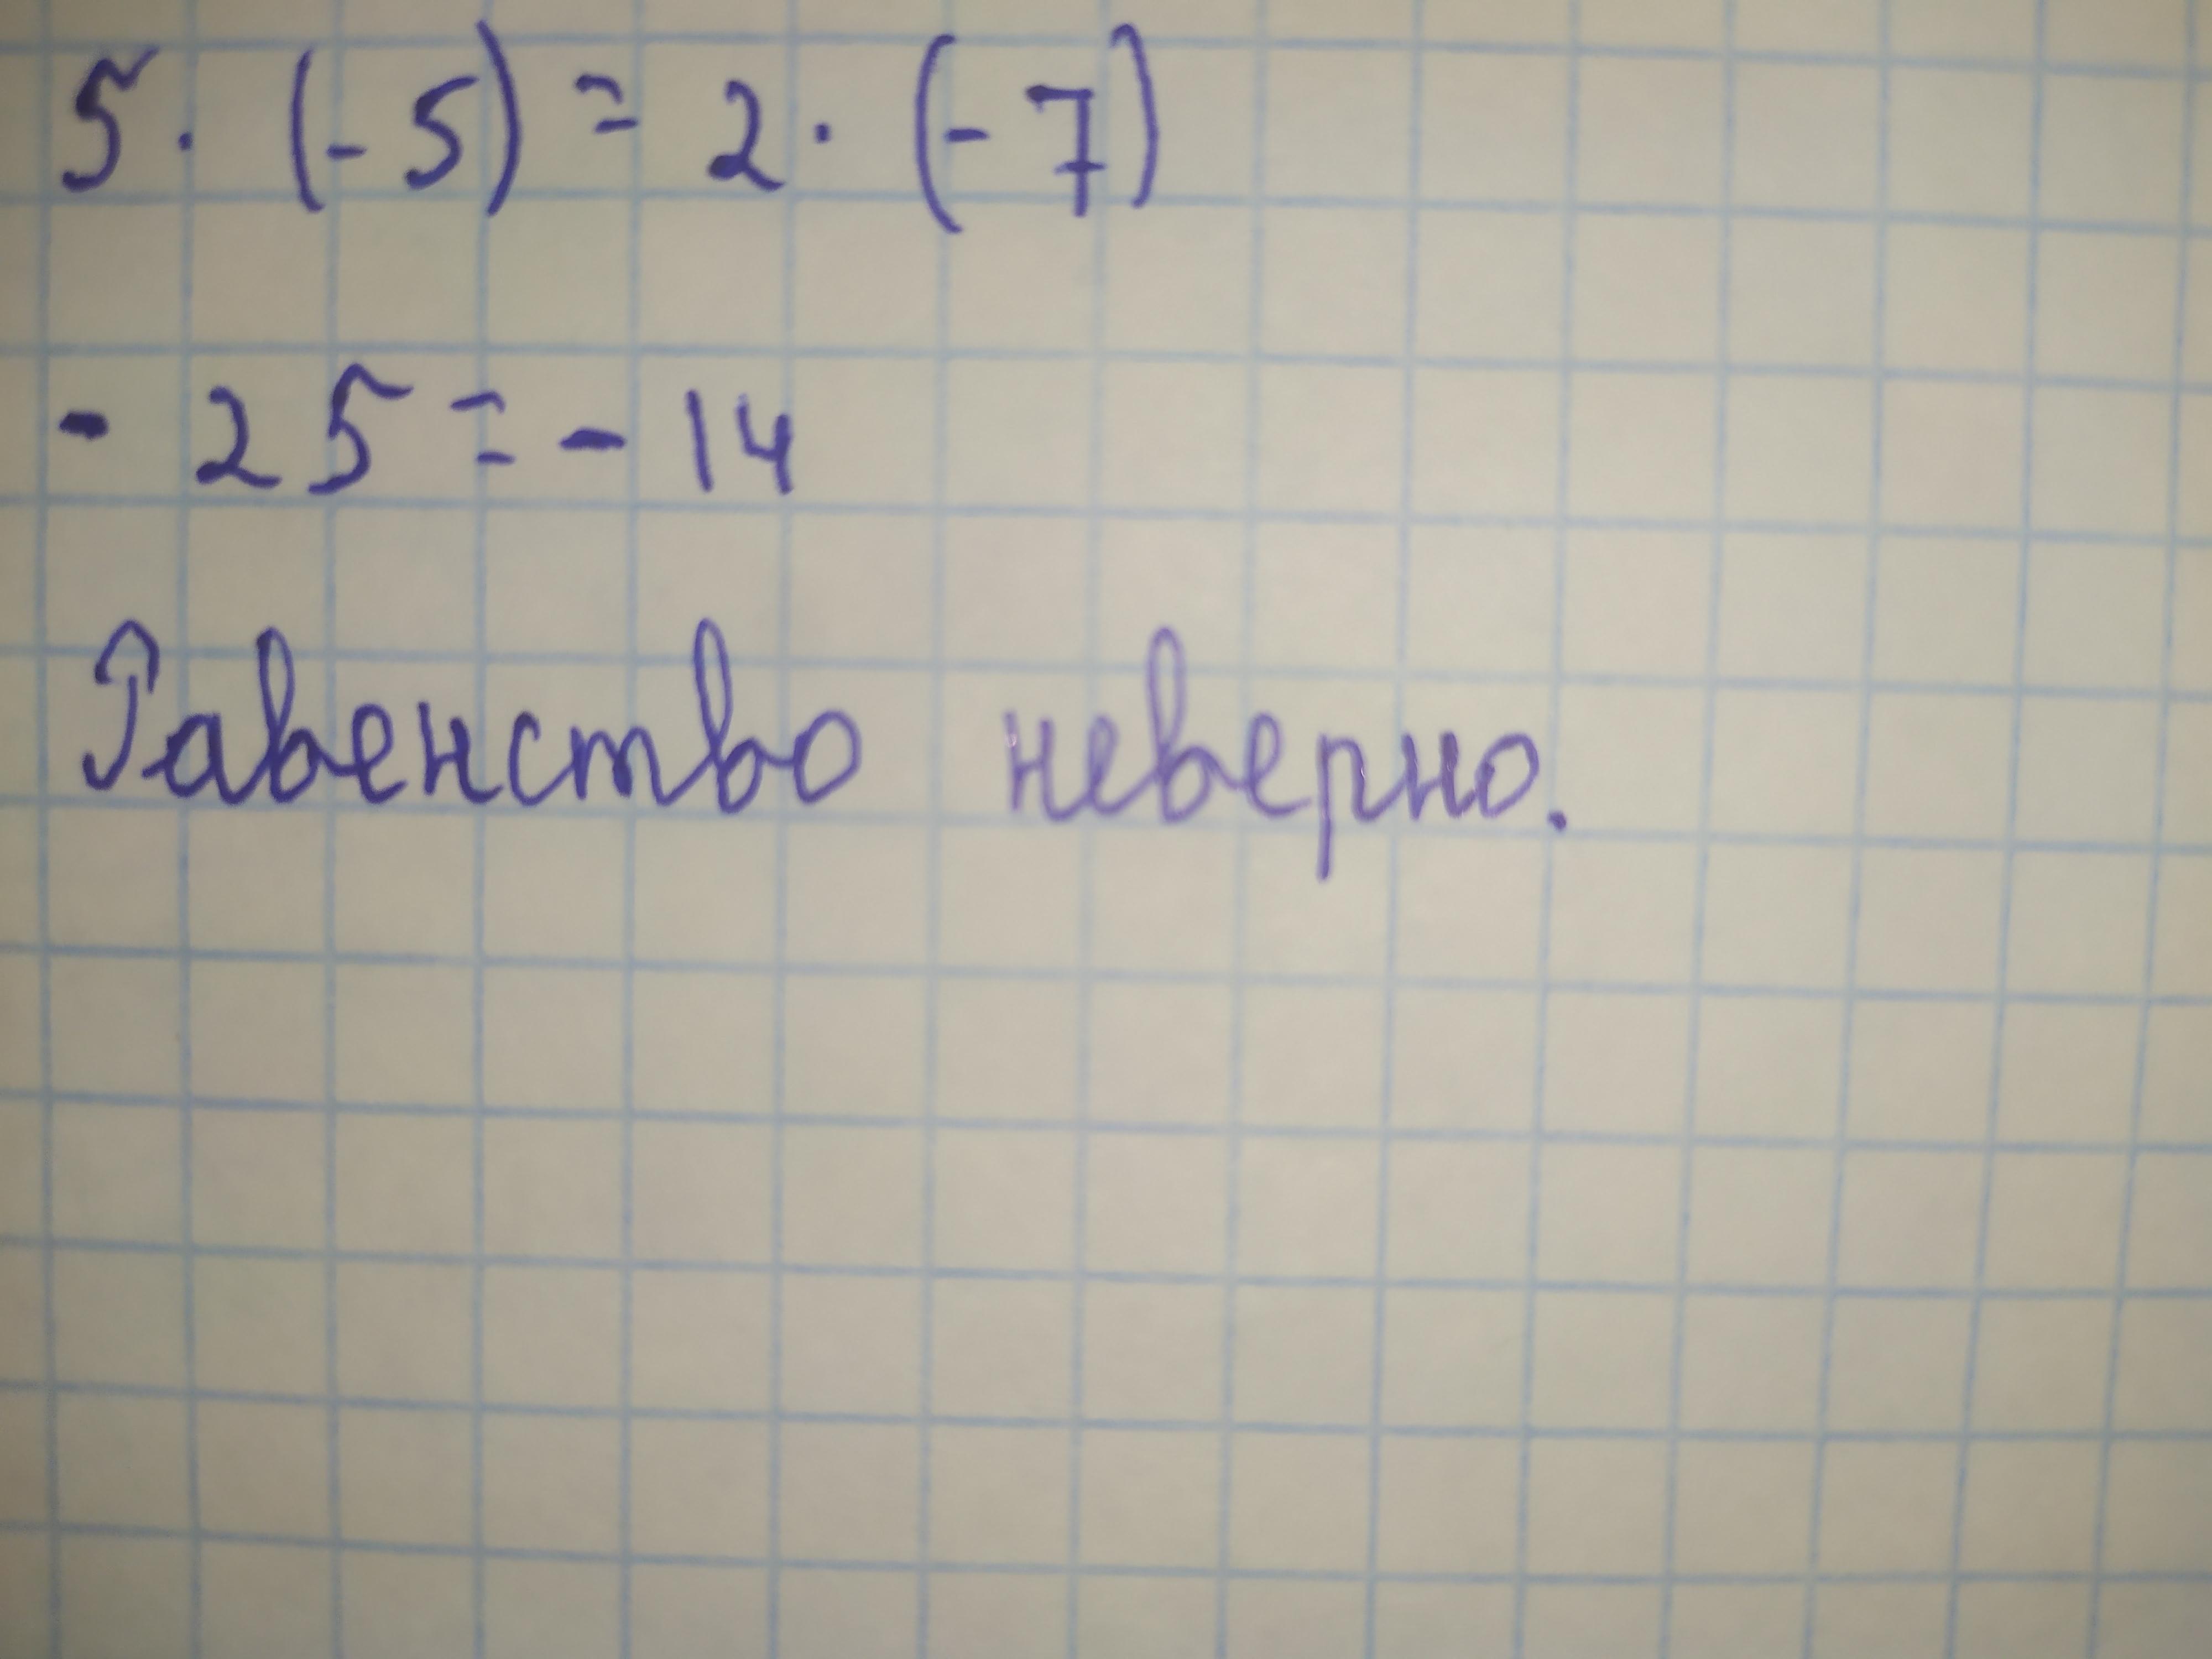 5 · (-5) = 2 · (-7)
- 25 = - 14
Равенство неверно.